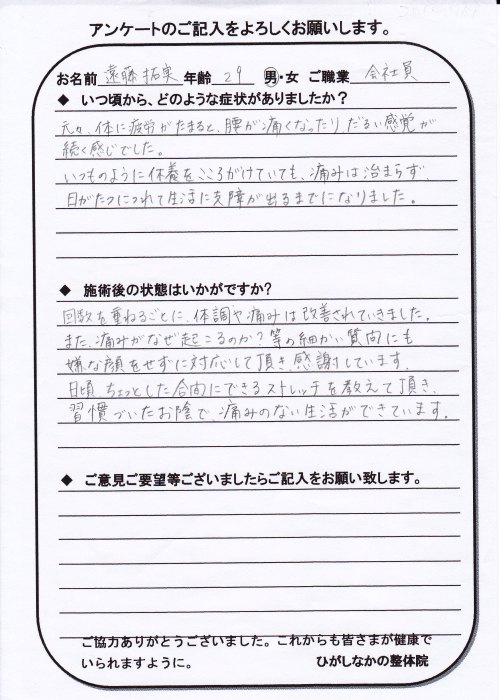 アンケートのご記入をよろしくお願いします。
お名前 遠藤拓実 年齢 29 男・女 ご職業 会社員
◆ いつ頃から、どのような症状がありましたか？
元々、体に疲労がたまると、腰が痛くなったり、だるい感覚が
続く感じでした。
いつものように休養をこころがけていても、痛みは治まらず、
日がたつにつれて生活に支障が出るまでになりました。
◆ 施術後の状態はいかがですか？
回数を重ねるごとに、体調や痛みは改善されていきました。
また、痛みがなぜ起こるのか？等の細かい質問にも
嫌な顔をせずに対応して頂き感謝しています。
日頃、ちょっとした合間にできるストレッチを教えて頂き、
習慣づいたお陰で、痛みのない生活ができています。
◆ ご意見ご要望等ございましたらご記入をお願い致します。
ご協力ありがとうございました。これからも皆さまが健康で
いられますように。 ひがしなかの整体院